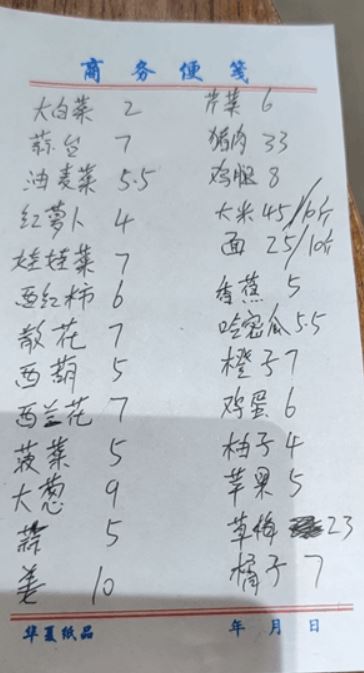 商务便笺
大白菜 2
蒜台 7
油麦菜 5.5
红萝卜 4
娃娃菜 7
西红柿 6
散花 7
西葫 5
西兰花 7
菠菜 5
大葱 9
蒜 5
姜 10
芹菜 6
猪肉 33
鸡腿 8
大米 45/10斤
面 25/10斤
香蕉 5
哈密瓜 5.5
橙子 7
鸡蛋 6
柚子 4
苹果 5
草梅 23
橘子 7
华夏纸品 年 月 日